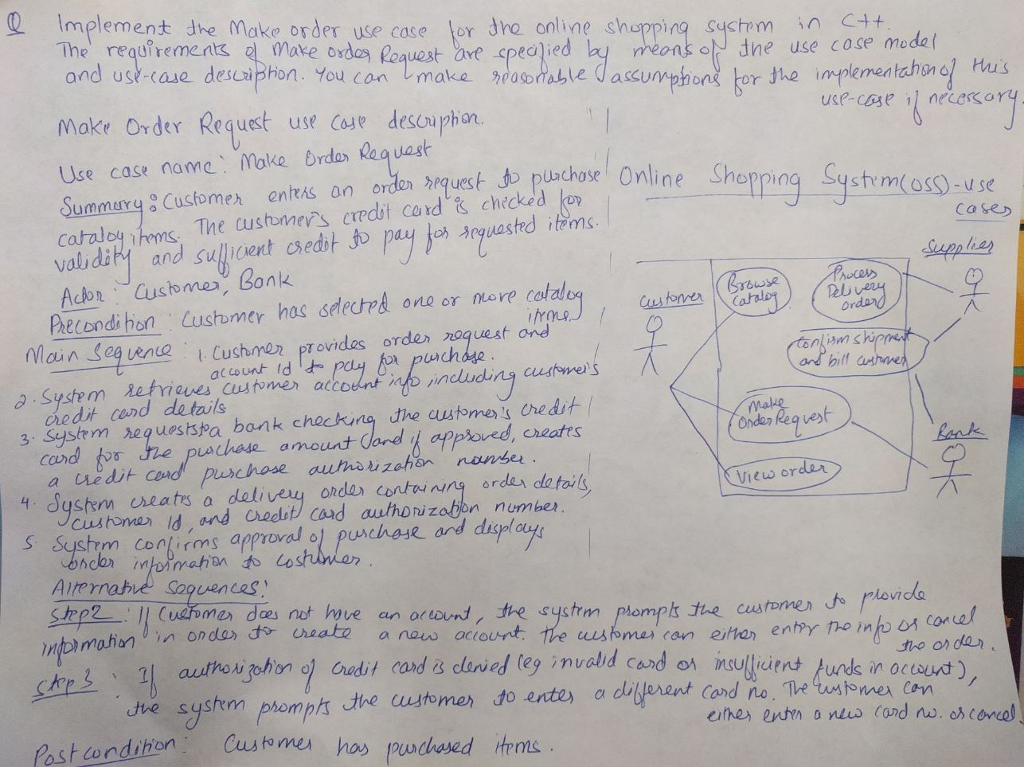 Q Implement the Make order use case for the online shopping system in C++.
The requirements of Make order Request are specified by means of the use case model
and use-case description. You can make reasonable assumptions for the implementation of this
use-case if necessary.
Make Order Request use case description.
Use case name: Make Order Request
Summary: Customer enters an order request to purchase
catalog items. The customer's credit card is checked for
validity and sufficient credit to pay for requested items.
Actor: Customer, Bank
Precondition: Customer has selected one or more catalog
items
Main Sequence: 1. Customer provides order request and
account Id to pay for purchase.
2. System retrieves customer account info including customer's
credit card details
3. System requests a bank checking the customer's credit
card for the purchase amount and if approved, creates
a credit card purchase authorization number.
4. System creates a delivery order containing order details,
customer Id, and credit card authorization number.
5 System confirms approval of purchase and displays
order information to costumer.
Alternative Sequences:
Step2: If Customer does not have an account, the system prompts the customer to provide
information in order to create a new account. The customer can either enter the info or cancel
the order.
Step 3: If authorization of credit card is denied (eg invalid card or insufficient funds in account),
the system prompts the customer to enter a different card no. The customer can
either enter a new card no. or cancel.
Post condition: Customer has purchased items.
Online Shopping System(OSS)-use
cases
Supplier
Customer
Browse
Catalog
Process
Delivery
order
Confirm shipment
and bill customer
Make
Order Request
Bank
View order